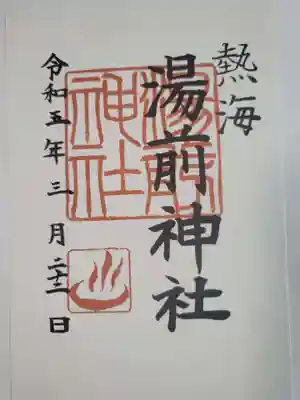 熱海
湯前神社
令和五年三月二十三日
湯前
神社